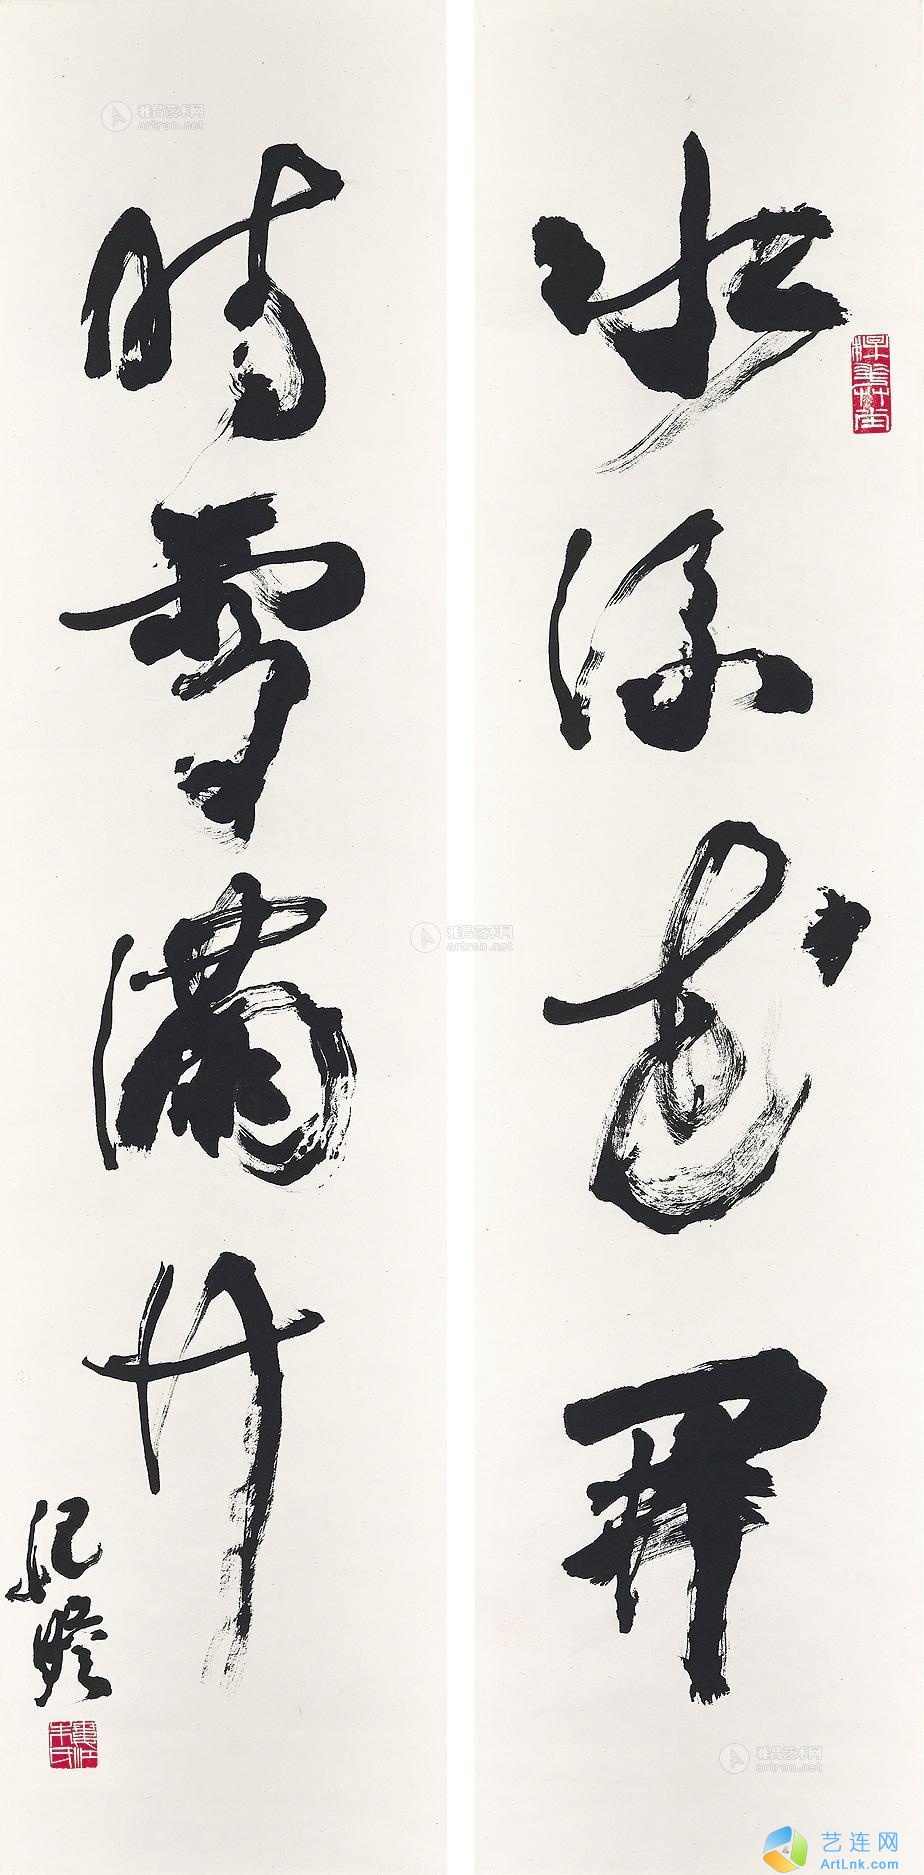 水流花開
楳華草堂
晴雪滿竹
屺瞻
婁江朱氏
雅昌艺术网
artron.net
雅昌艺术网
artron.net
雅昌艺术网
artron.net
艺连网
ArtLnk.com